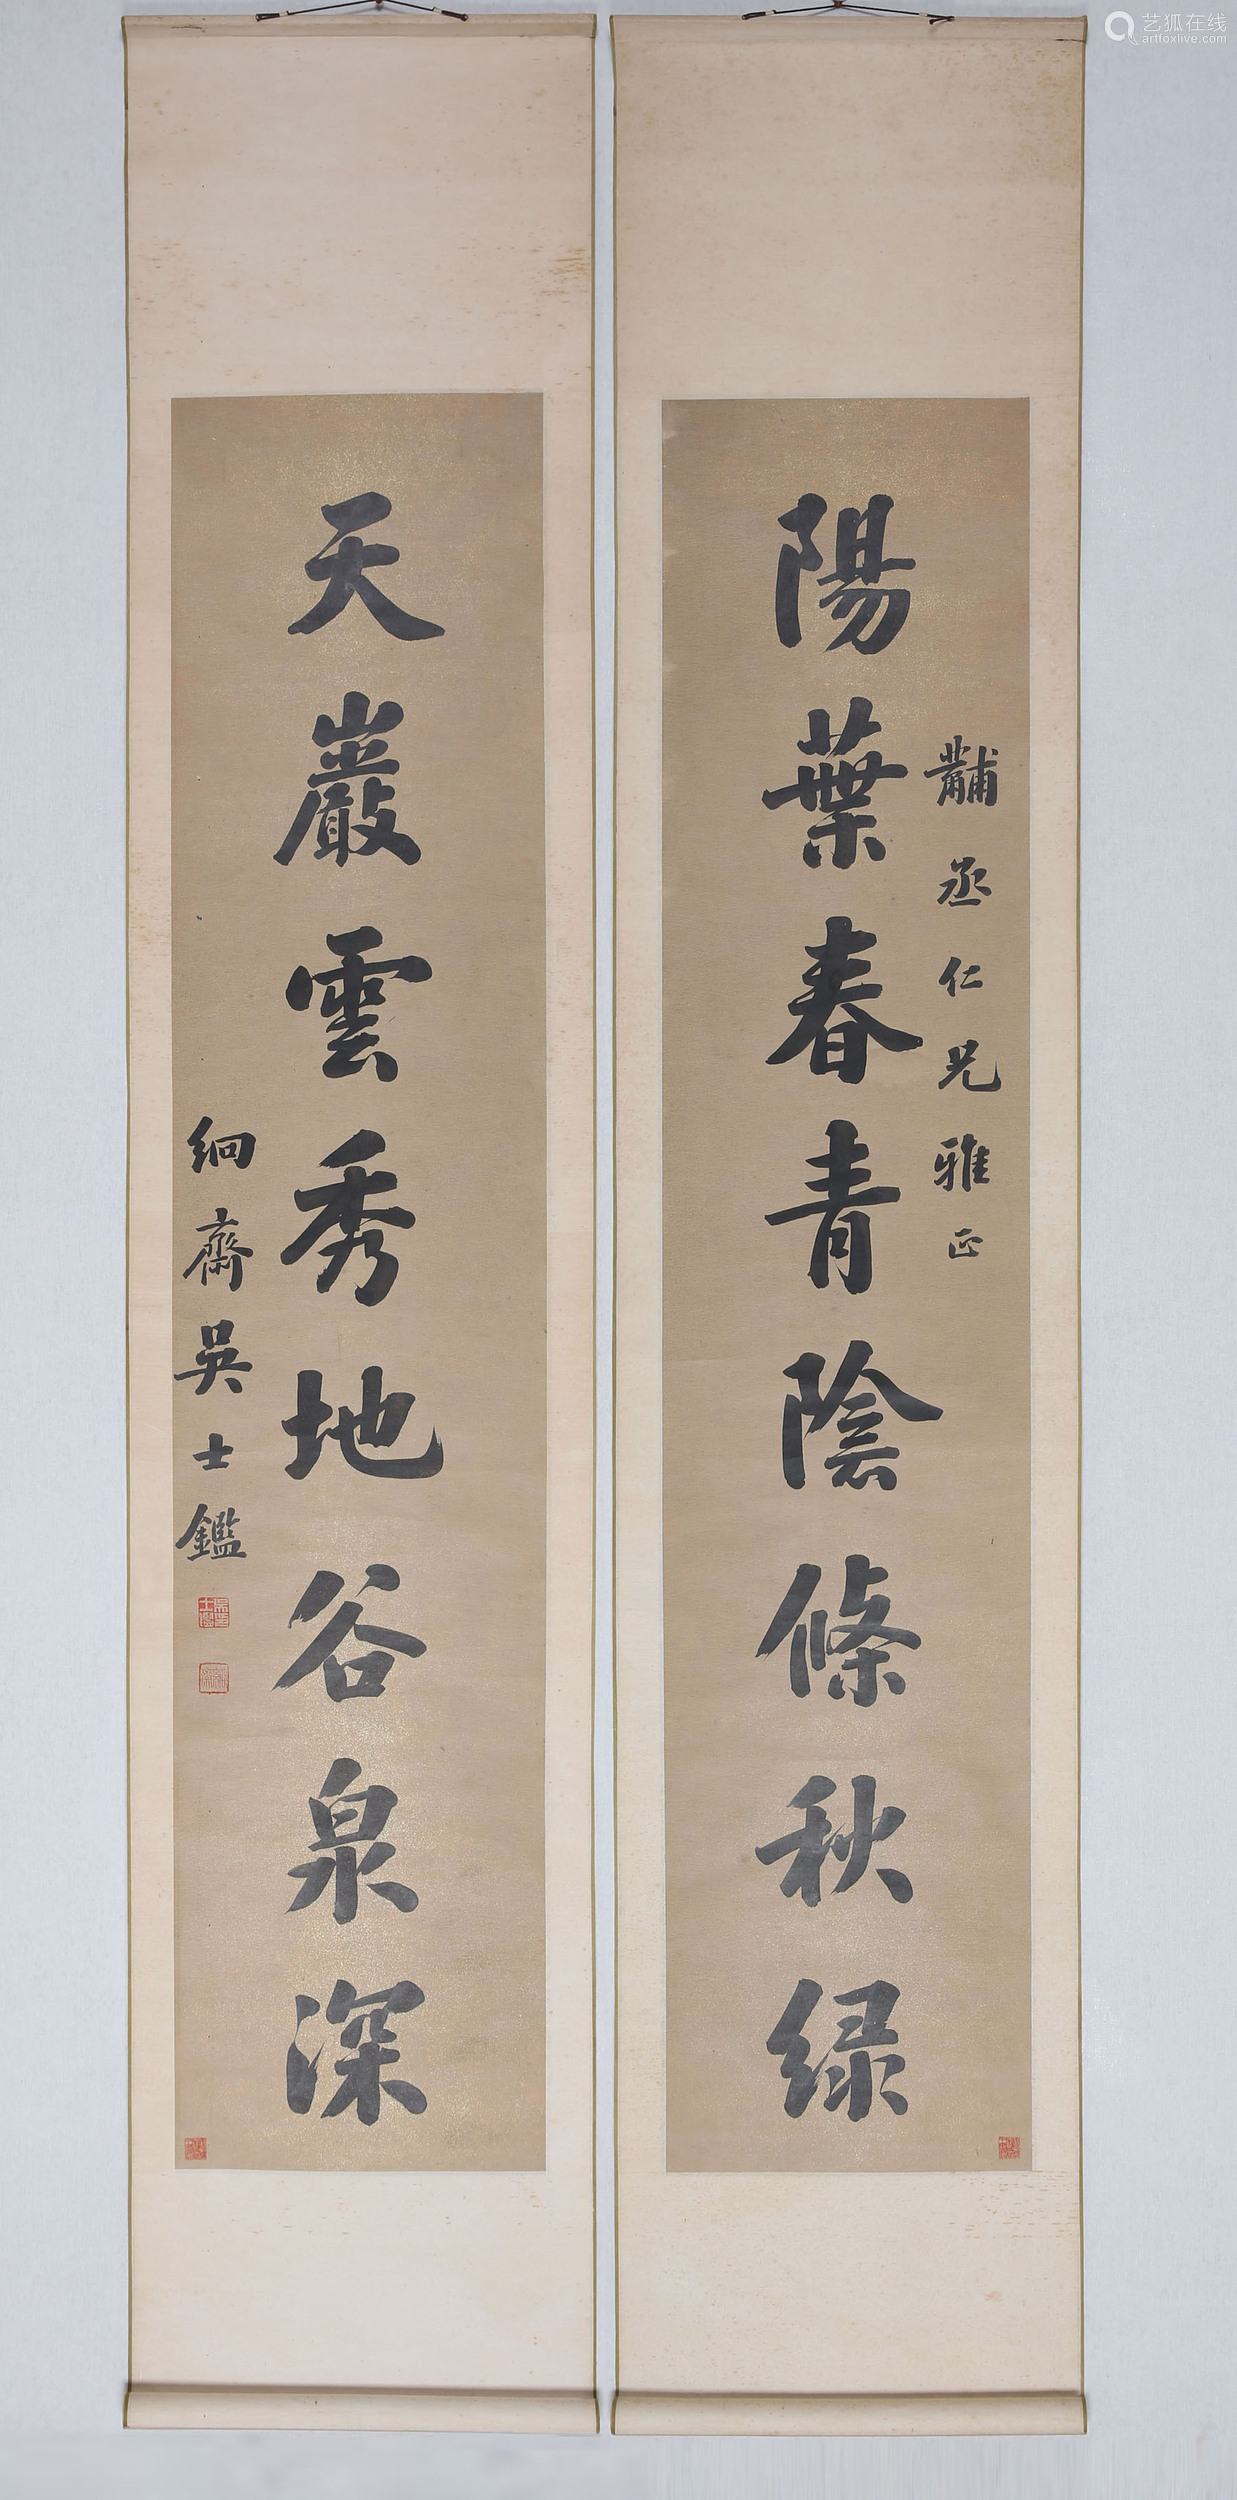 陽葉春青陰條秋緑
黼丞仁兄雅正
天巖雲秀地谷泉深
絅齋吳士鑑
艺狐在线
artfoxlive.com